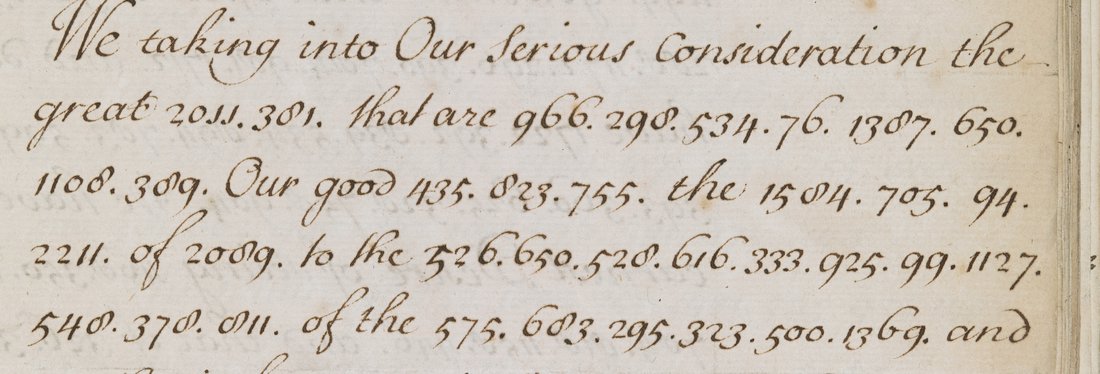 We taking into Our Serious Consideration the
great 2011.381. that are 966.298.534.76. 1387. 650.
1108.389. Our good 435. 823.755. the 1584. 705. 94.
2211. of 2089. to the 526.650.528.616.333.925.99.1127.
548.378.811. of the 575. 683.295.323.500.1369. and